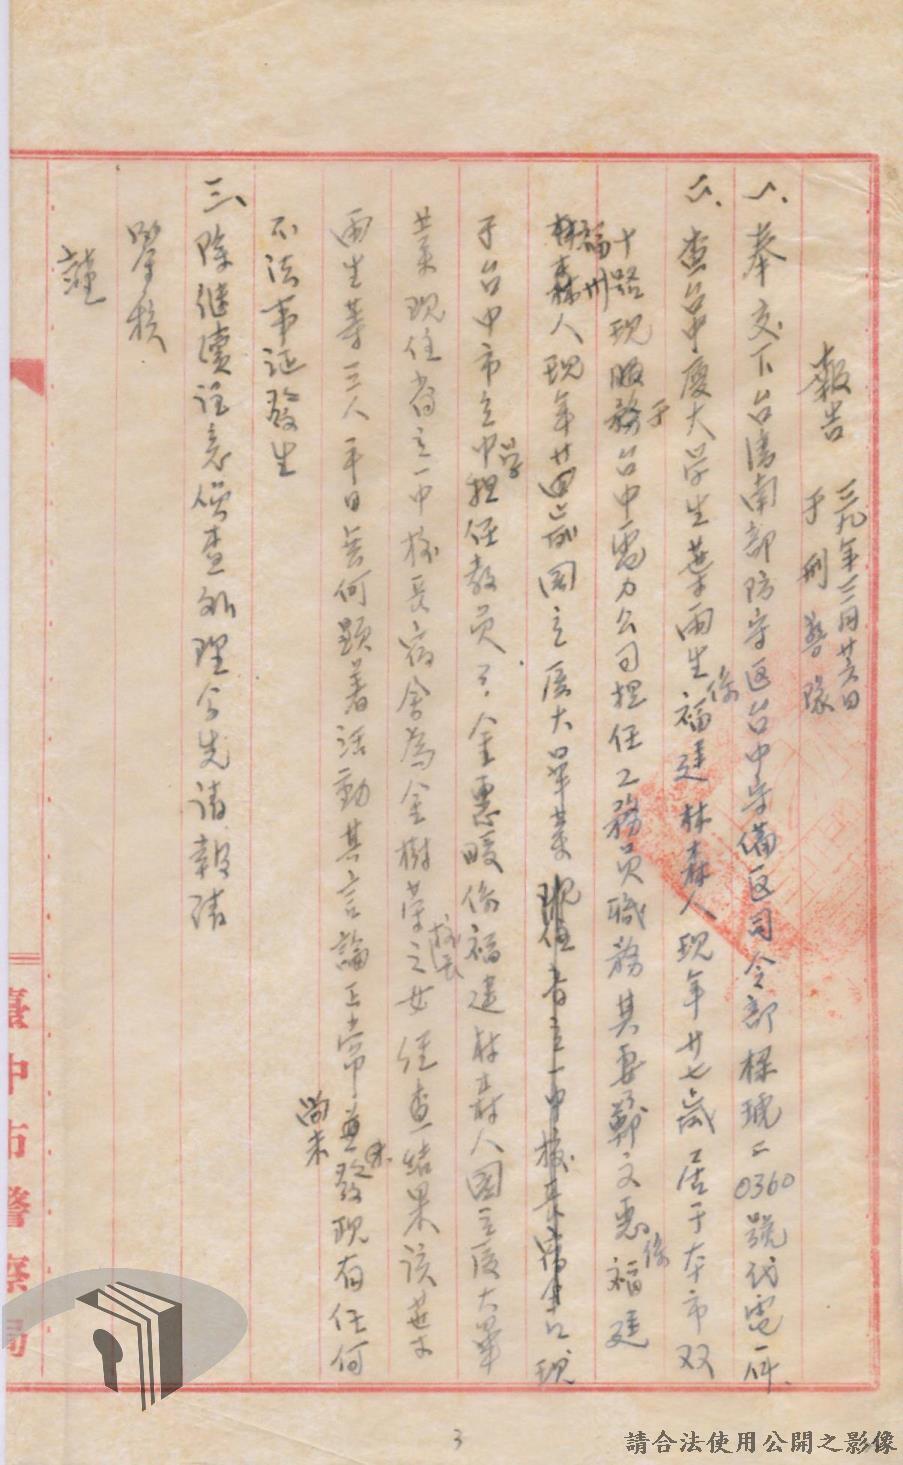 報告 三九年三月廿六日
于刑警隊
一、奉交下台湾南部防守区台中守備区司令部樑琥二0360號代電一件、
二、查台中廈大学生葉雨生係福建林森人現年廿七歲居于本市双
十路現服務于台中電力公司担任工務員職務其妻鄭文惠係福建
福州
林森人現年廿四歲國立厦大畢業現住省立一中校長宿舍現
于台中市立中学担任教員 金惠暖係福建林森人國立厦大畢
業現住省立一中校長宿舍為金樹荣校長之女 經查結果該葉
雨生等三人平日無何顕著活動其言論正常並未發現有任何
尚未
不法事証發生
三、除继續注意偵查处理今先请報请
鑒核
謹
臺中市警察局
3
請合法使用公開之影像